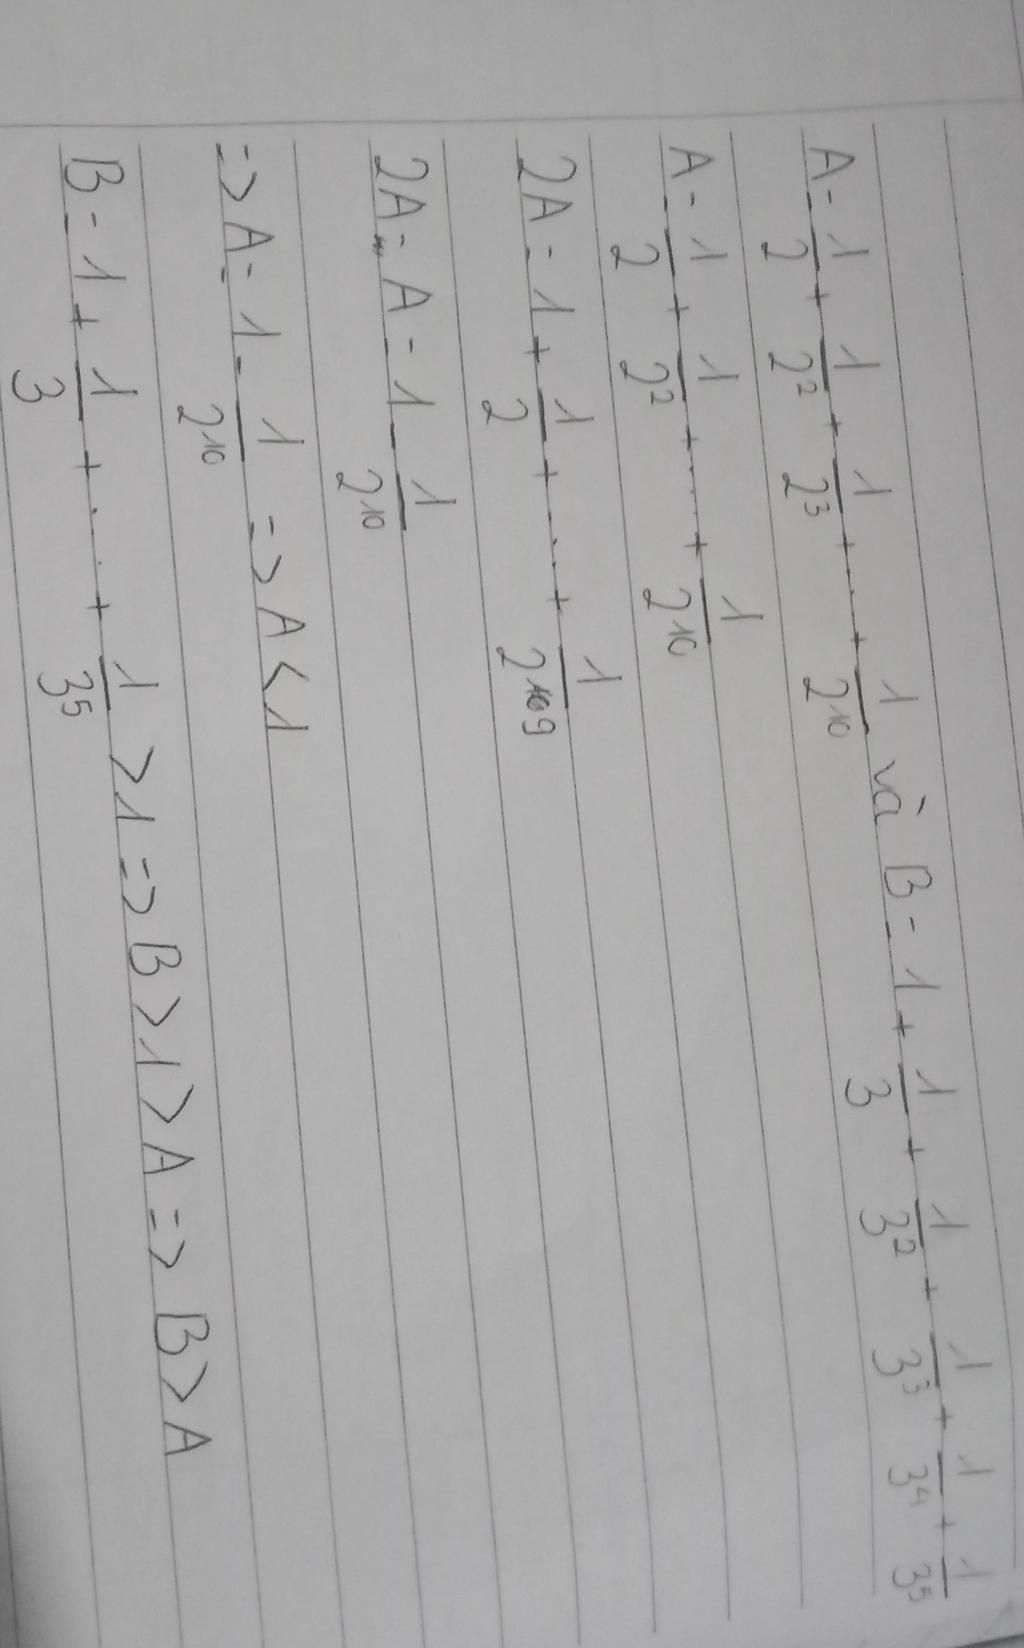 A = 1/2 + 1/2² + 1/2³ + .... + 1/2¹⁰ và B = 1 + 1/3 + 1/3² + 1/3³ + 1/3⁴ + 1/3⁵
A = 1/2 + 1/2² + .... + 1/2¹⁰
2A = 1 + 1/2 + .... + 1/2⁹
2A - A = 1 - 1/2¹⁰
=> A = 1 - 1/2¹⁰ => A < 1
B = 1 + 1/3 + .... + 1/3⁵ > 1 => B > 1 > A => B > A